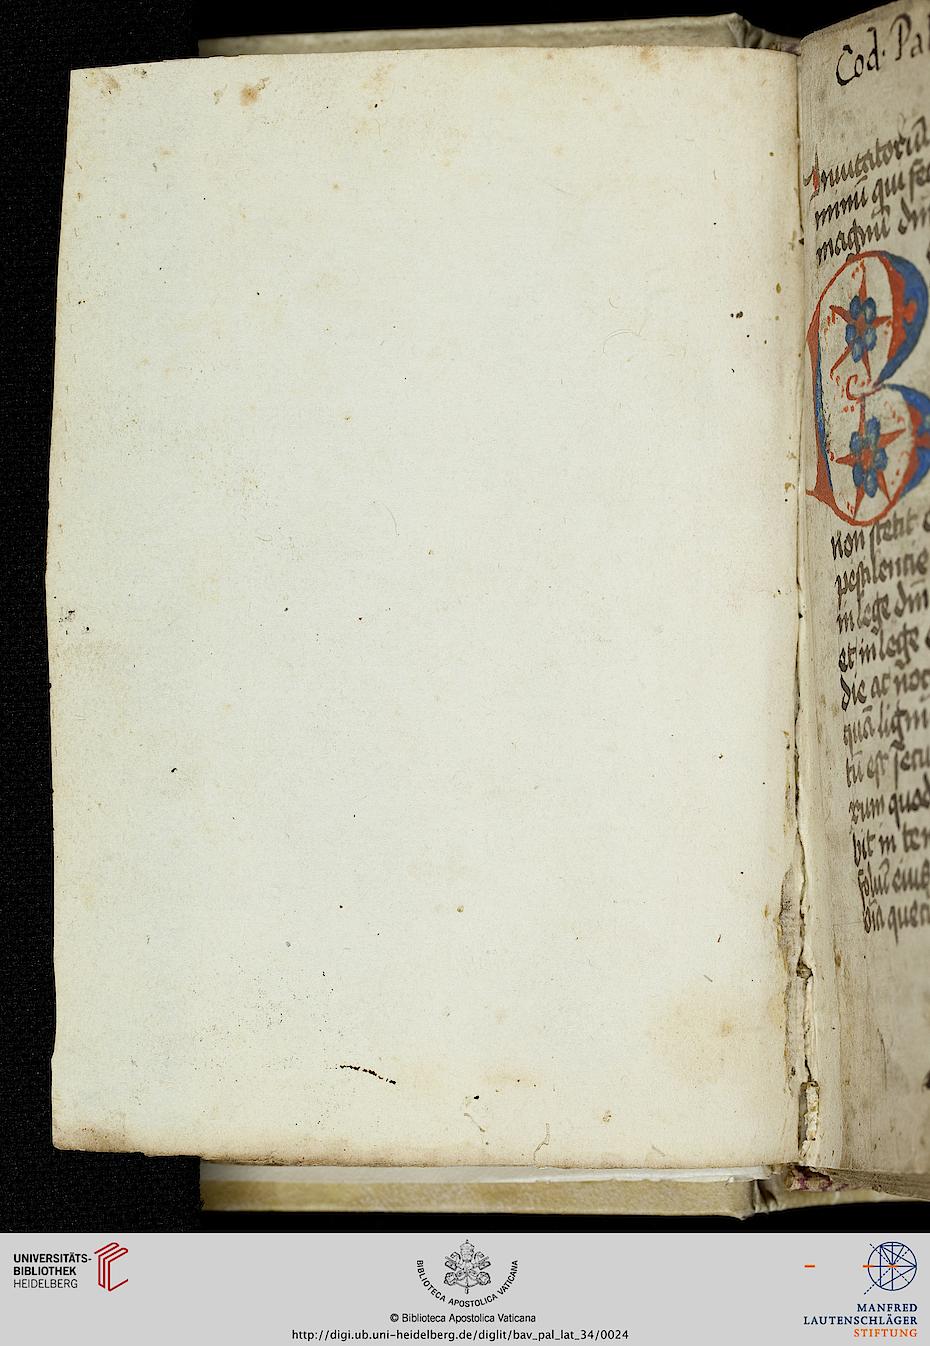 Cod. Pal
Inuitatoriū
minū qui fec
magnū dm̄
B
non stetit
pestilentie
in lege dm̄
et in lege
die ac noc
quā lignū
tū est secu
rum quod
bit in tem
foliū eius
oīa quecū
UNIVERSITÄTS-
BIBLIOTHEK
HEIDELBERG
BIBLIOTECA APOSTOLICA VATICANA
© Biblioteca Apostolica Vaticana
http://digi.ub.uni-heidelberg.de/diglit/bav_pal_lat_34/0024
MANFRED
LAUTENSCHLÄGER
STIFTUNG